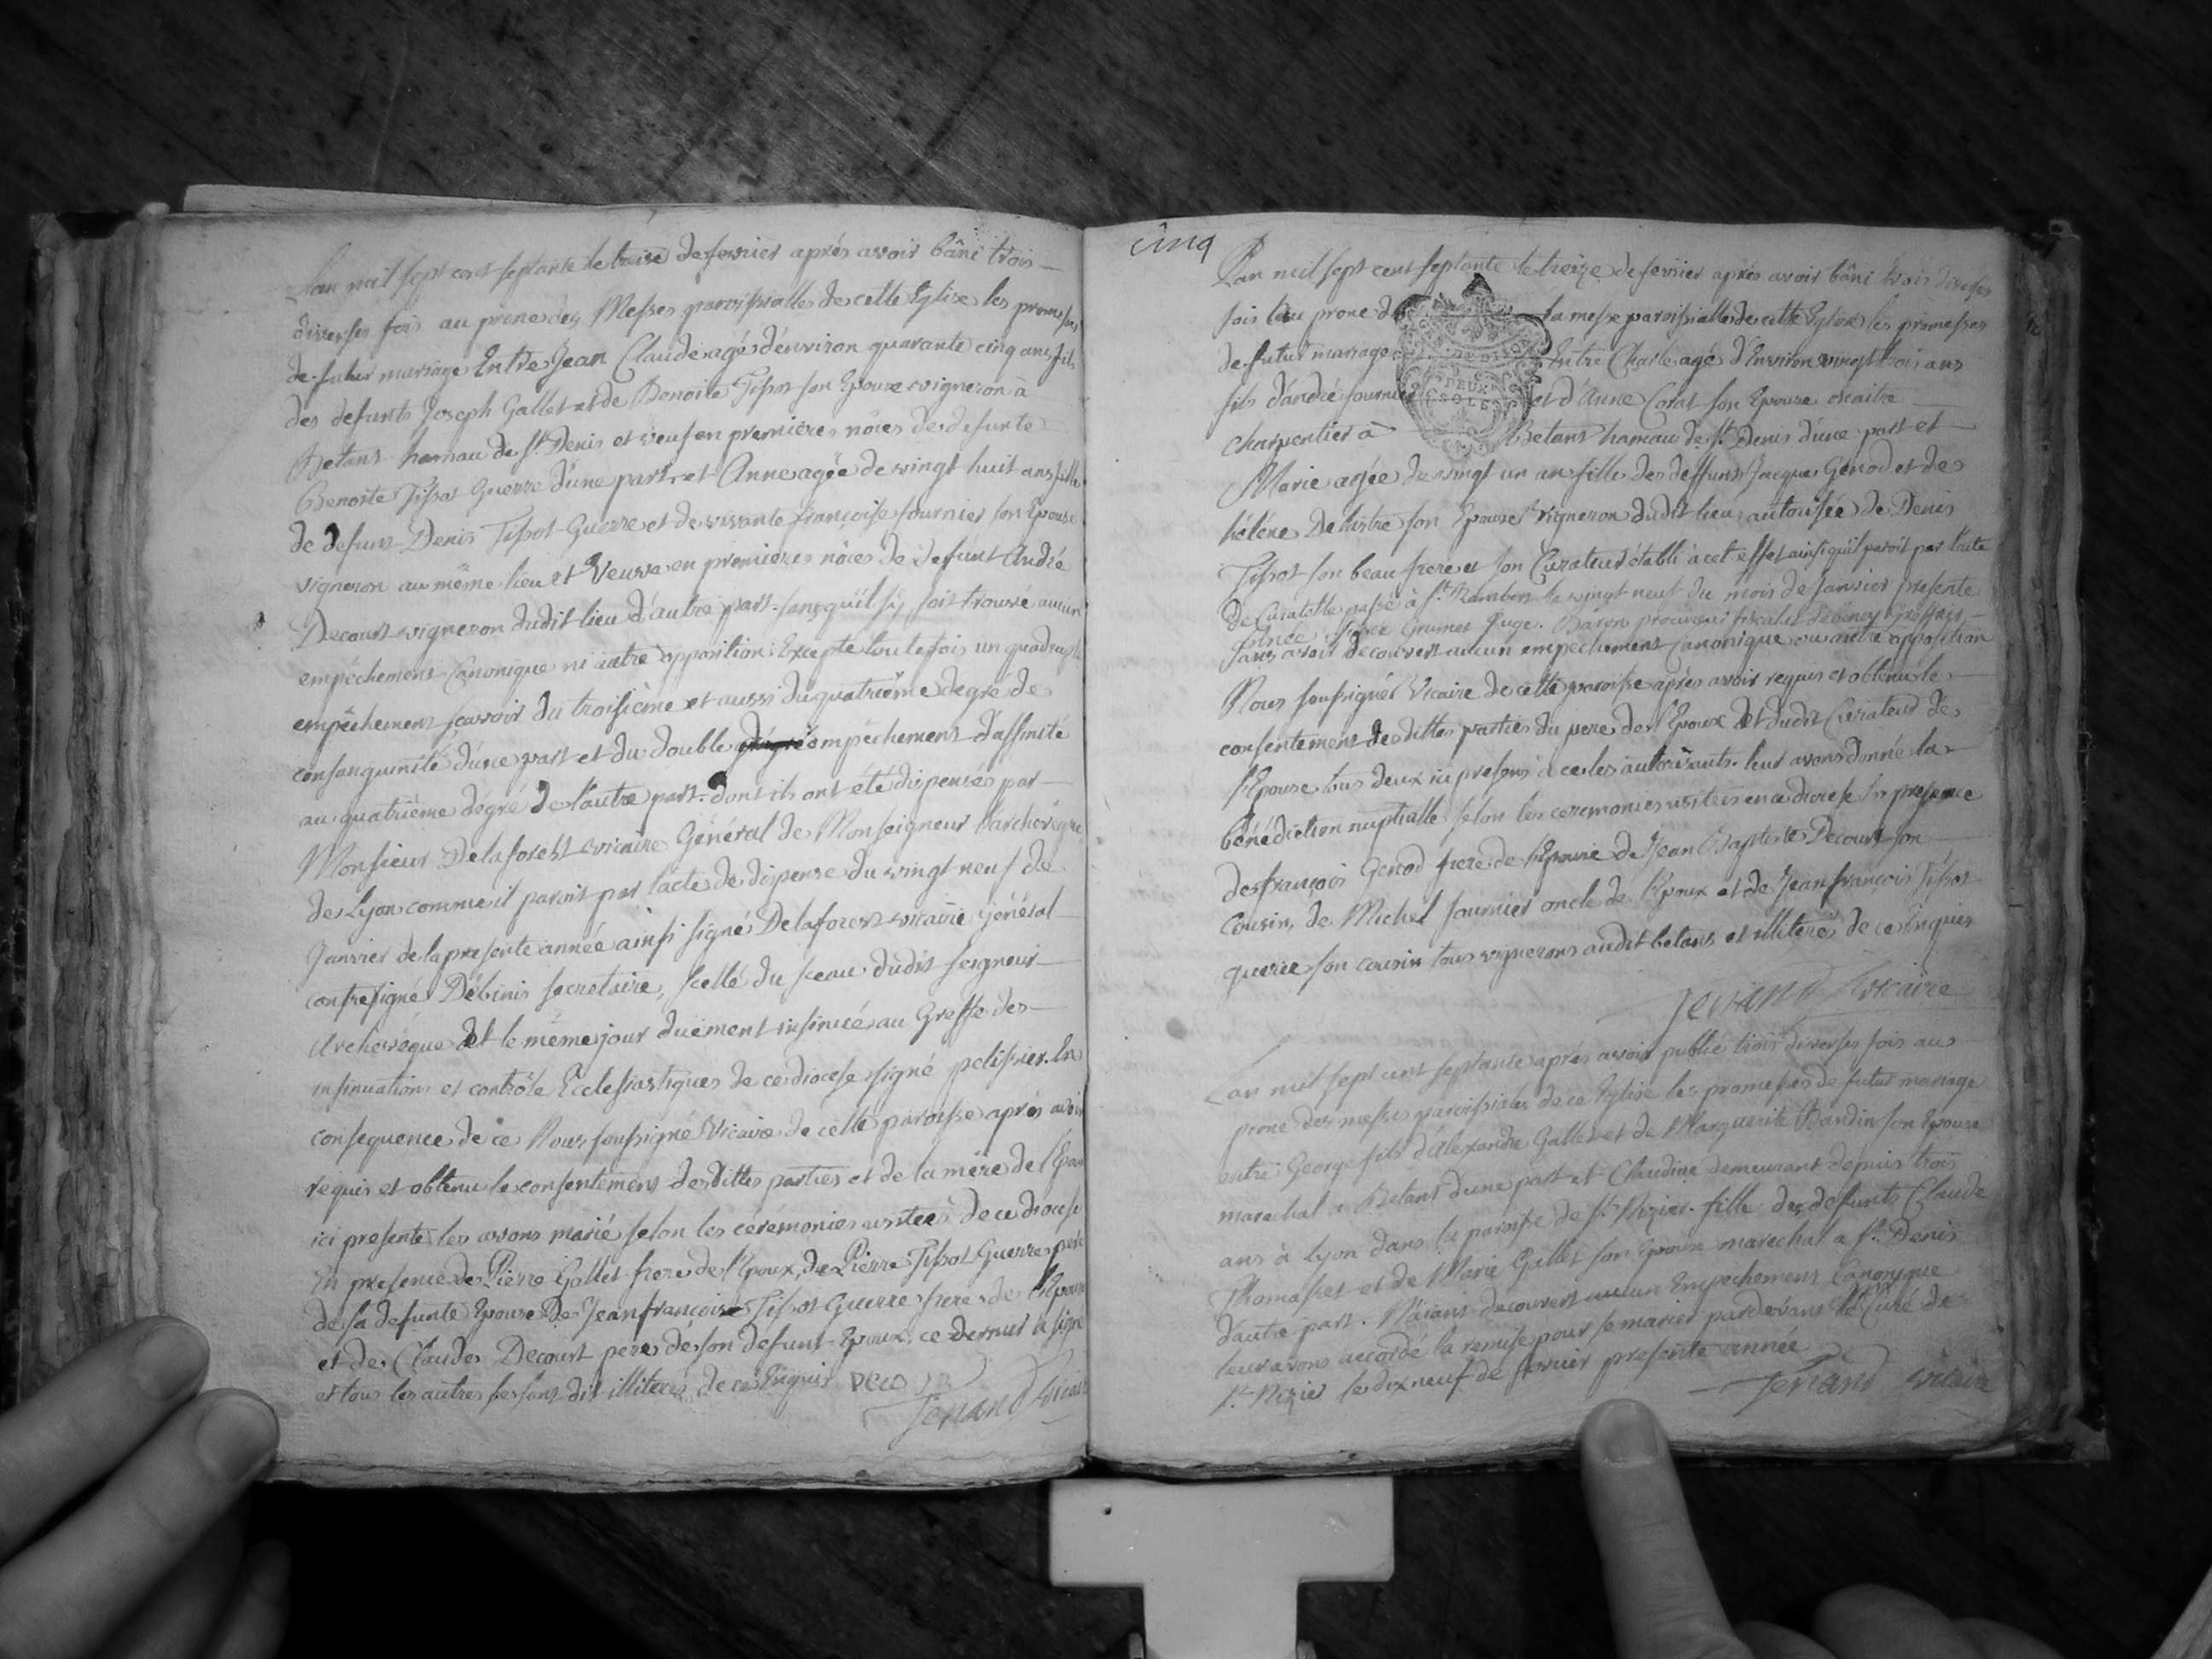 Lan mil sept cent septante le treise de fevrier aprés avoir bâni trois
diverses fois au prone des Messes paroissialles de cette Eglise les promesses
de futur mariage Entre Jean Claude agé d'environ quarante cinq ans fils
des defunts Joseph Gallet et de Benoite Tissot son Epouse vigneron à
Betant hameau de St Denis et veuf en premieres nôces de defunte
Benoite Tissot Guerre d'une part, et Anne agée de vingt huit ans fille
de defunt Denis Tissot Guerre et de vivante françoise fournier son Epouse
vigneron au même lieu et Veuve en premieres nôces de defunt André
Decourt vigneron dudit lieu d'autre part. sans qu'il sy soit trouvé aucun
empéchement Canonique ni autre opposition: Excepté toutefois un quadruple
empêchement sçavoir du troisième et aussi du quatrième degré de
consanguinité d'une part et du double empéchement d'affinité
au quatrième dégré de l'autre part. dont ils ont été dispensés par
Monsieur Delaforest vicaire Général de Monseigneur l'archevêque
de Lyon comme il paroit par l'acte de dispense du vingt neuf de
Janvier de la presente année ainsi signé Delaforest vicaire général
contresigné Débinis secretaire, scellé du sceau dudit seigneur
Archevêque et le même jour duëment insinué au Greffe des
insinuations et contrôle Ecclesiastiques de ce diocese signé pelissier. En
consequence de ce Nous soussigné Vicaire de cette paroisse aprés avoir
requis et obtenu le consentement desdittes parties et de la mére de l'Epouse
ici presente les avons marié selon les cérémonies usitées de ce diocese
En presence de Pierre Gallet frere de l'Epoux, de Pierre Tissot Guerre pere
de sa defunte Epouse De Jean françois Tissot Guerre frere de l'Epouse
et de Claude Decourt pere de son defunt Epoux. ce dernier a signé
et tous les autres se sont dit illiteres de ce Enquis
Tenand vicaire
cinq
Lan mil sept cent septante le treize de fevrier aprés avoir bâni trois diverses
fois au prone de la messe paroissialle de cette Eglise les promesses
de futur mariage Entre Charle agé d'Environ vingt trois ans
DEUX
SOLS
fils d'andré fournier et d'Anne Corat son Epouse maitre
charpentier à Betant hameau de St Denis d'une part et
Marie agée de vingt un an fille des deffunts Jacque Genod et de
hélène Delastre son Epouse Vigneron dudit lieu, autorisée de Denis
Tissot son beau frere et son Curateur établi à cet effet ainsi qu'il paroit par l'acte
de Curatelle passé à St Rambert le vingt neuf du mois de Janvier presente
année signé Grumet Juge. Baron procureur fiscal et Greffier
sans avoir decouvert aucun empechement Canonique ou autre opposition
Nous soussigné Vicaire de cette paroisse aprés avoir requis et obtenu le
consentement desdittes parties du pere de l'Epoux et dudit Curateur de
l'Epouse tous deux ici presens à ce les autorisants. leur avons donné la
bénédiction nuptialle selon les ceremonies usitées en ce diocese En presence
de françois Genod frere de l'Epouse de Jean Baptiste Decourt son
Cousin, de Michel fournier oncle de l'Epoux et de Jean françois Tissot
guerre son cousin tous vignerons audit betans et illiteres de ce Enquis
Tenand vicaire
Lan mil sept cent septante aprés avoir publié trois diverses fois au
prone des messes paroissiales de ce Eglise les promesses de futur mariage
entre George fils d'Alexandre Gallet et de Marguerite Bandin son Epouse
marechal a Betant d'une part et Claudine demeurant depuis trois
ans à Lyon dans la paroisse de St Nizier. fille des defunts Claude
Thomasset et de Marie Gallet son Epouse marechal a St Denis
d'autre part. N'aiant decouvert aucun Empechement Canonique
leur avons accordé la remise pour se marier pardevant le Curé de
St Nizier le dix neuf de fevrier presente année
Tenand vicaire